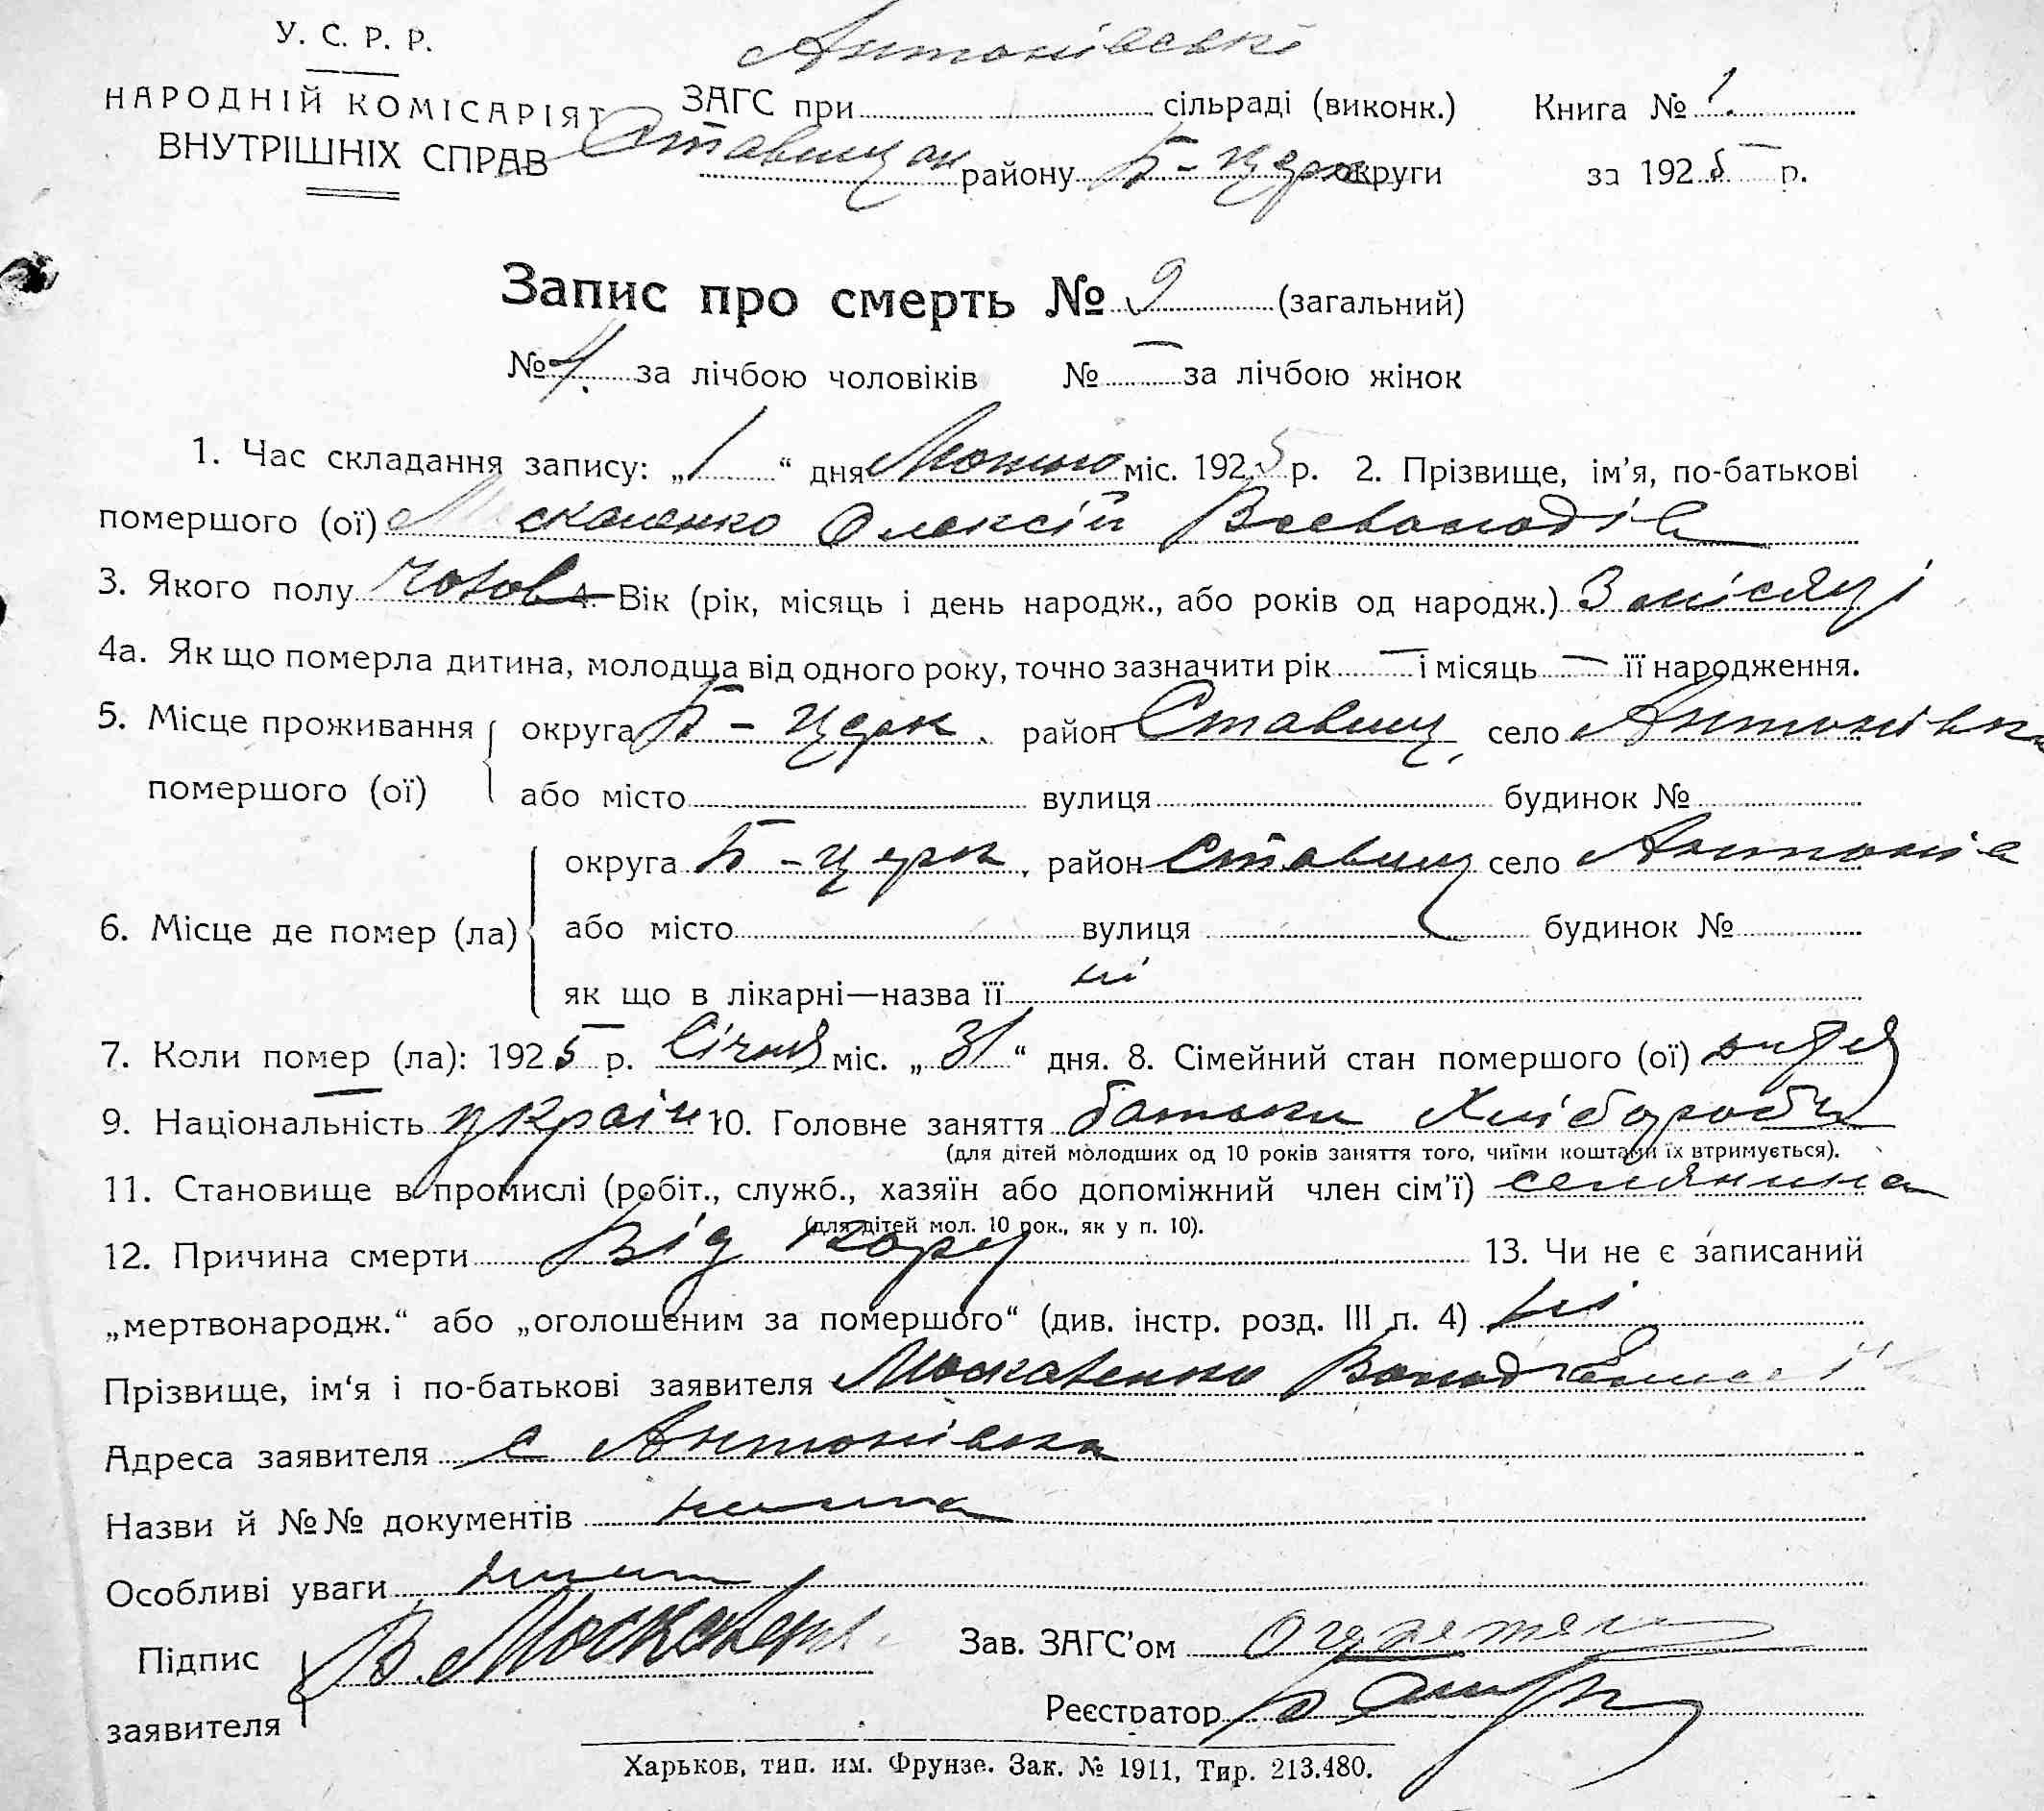 Антонівські
У. С. Р. Р.
НАРОДНІЙ КОМІСАРІЯТ ЗАГС при сільраді (виконк.) Книга № 1.
ВНУТРІШНІХ СПРАВ Ставищан району Б-Церк округи за 1925 р.
Запис про смерть № 9 (загальний)
№ 4. за лічбою чоловіків № — за лічбою жінок
1. Час складання запису: „1“ дня міс. 1925 р. 2. Прізвище, ім’я, по-батькові
помершого (ої) Москаленко Олексій
3. Якого полу Чолов 4. Вік (рік, місяць і день народж., або років од народж.) 3 місяці
4а. Як що померла дитина, молодща від одного року, точно зазначити рік — і місяць — її народження.
5. Місце проживання округа Б-Церк. район Ставищ. село Антонівка
помершого (ої) або місто вулиця будинок №
округа Б-Церк. район Ставищ село Антонів
6. Місце де помер (ла) або місто вулиця будинок №
як що в лікарні—назва її ні
7. Коли помер (ла): 1925 р. Січня міс. „31“ дня. 8. Сімейний стан помершого (ої)
9. Національність україн 10. Головне заняття батьки Хлібороби
(для дітей молодших од 10 років заняття того, чиїми коштами їх втримується).
11. Становище в промислі (робіт., служб., хазяїн або допоміжний член сім’ї) селянина
(для дітей мол. 10 рок., як у п. 10).
12. Причина смерти Від кору 13. Чи не є записаний
„мертвонародж.“ або „оголошеним за помершого“ (див. інстр. розд. III п. 4) ні
Прізвище, ім‘я і по-батькові заявителя Москаленко
Адреса заявителя с Антонівка
Назви й №№ документів нима
Особливі уваги нима
Підпис В. Москален Зав. ЗАГС’ом
заявителя Реєстратор
Харьков, тип. им. Фрунзе. Зак. № 1911, Тир. 213.480.